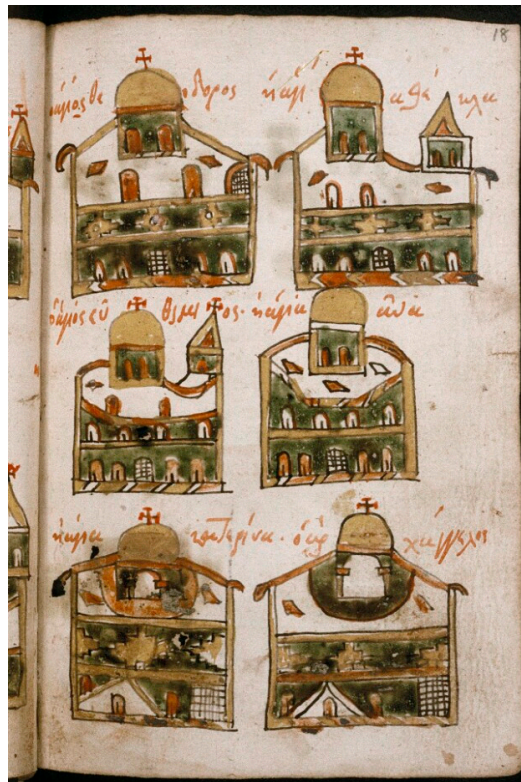 18
ὁ ἅγιος θεόδορος ἡ ἁγία θέκλα
ὁ ἅγιος εὐθύμιος · ἡ ἁγία ἄνα
ἡ ἁγία κατερίνα · ὁ ἀρχάγγελος